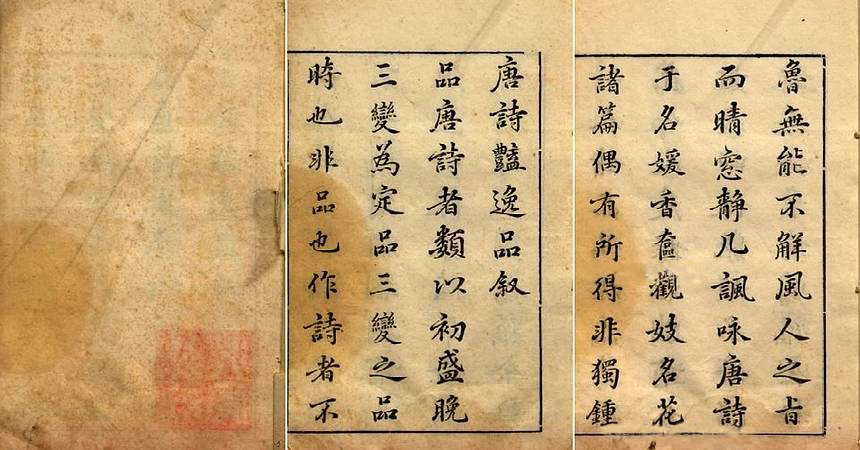 唐詩豔逸品叙
品唐詩者類以初盛晚
三變為定品三變之品
時也非品也作詩者不
魯無能不解風人之旨
而晴窓静几諷咏唐詩
于名媛香奩觀妓名花
諸篇偶有所得非獨鍾